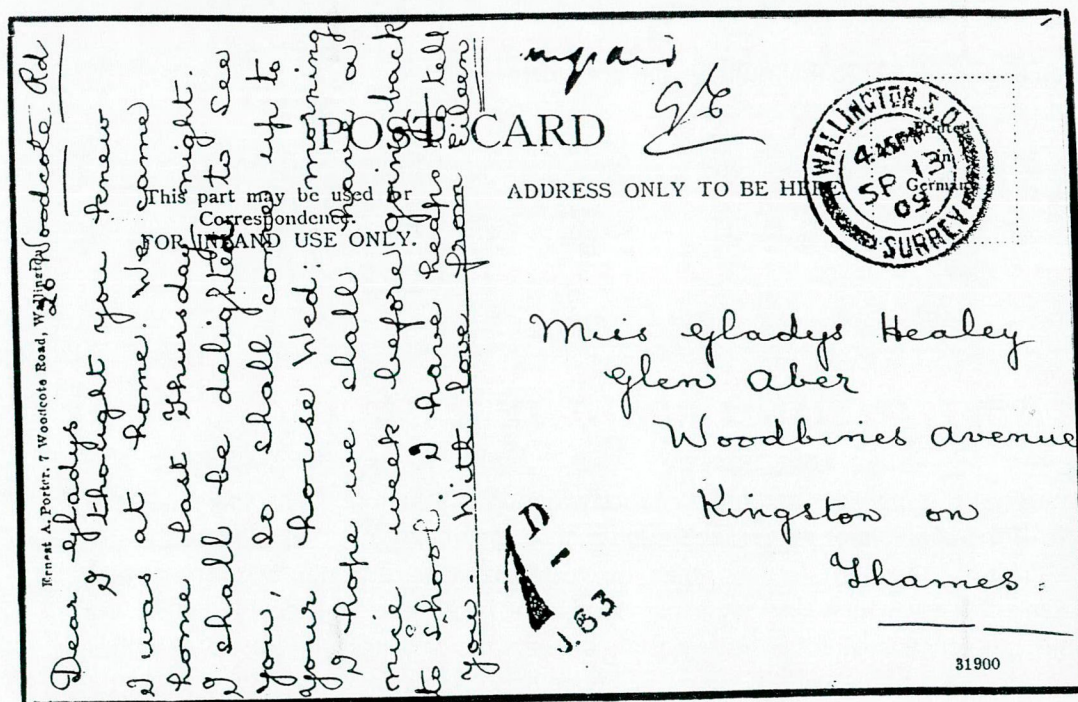 Ernest A. Porter, 7 Woodcote Road, Wallington
20 Woodcote Rd
Dear Gladys
I thought you knew
I was at home. We came
home last Thursday night.
I shall be delighted to see
you, so shall come up to
your house Wed: morning
I hope we shall have a
nice week before going back
to school I have heaps to tell
you. With love from Eileen
unpaid
G/E
POST CARD
This part may be used for
Correspondence.
FOR INLAND USE ONLY.
ADDRESS ONLY TO BE HERE
Printed
in
Germany
WALLINGTON. S.O.
4.45PM
SP 13
09
SURREY
Miss Gladys Healey
Glen Aber
Woodbines Avenue
Kingston on
Thames:
1D
J.83
31900